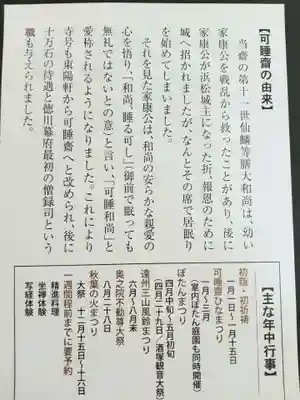 【可睡齋の由来】
当齋の第十一世仙麟等膳大和尚は、幼い
家康公を戦乱から救ったことがあり、後に
家康公が浜松城主になった折、報恩のために
城へ招かれましたが、なんとその席で居眠り
を始めてしまいました。
それを見た家康公は、和尚の安らかな親愛の
心を悟り、「和尚、睡る可し」(御前で眠っても
無礼ではないとの意)と言い、「可睡和尚」と
愛称されるようになりました。これにより
寺号も東陽軒から可睡齋へと改められ、後に
十万石の待遇と徳川幕府最初の僧録司という
職も与えられました。
【主な年中行事】
初詣・初祈祷
一月一日～一月十五日
可睡齋ひなまつり
一月～三月
ぼたんまつり
(室内ぼたん庭園も同時開催)
四月中旬～五月初旬
(四月二十九日/酒塚観音大祭)
遠州三山風鈴まつり
六月～八月末
奥之院不動尊大祭
八月二十八日
秋葉の火まつり
大祭 十二月十五日～十六日
一週間程前までに要予約
精進料理
坐禅体験
写経体験